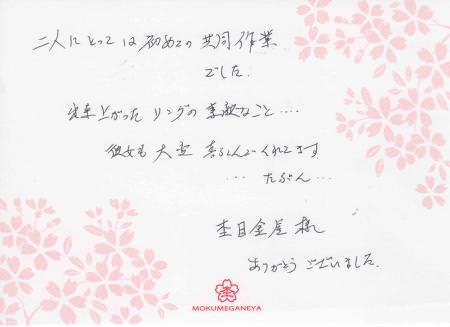 二人にとっては初めての共同作業
でした.
出来上がったリングの素敵なこと....
彼女も大変喜んでくれてます
... たぶん...
杢目金屋 様
ありがとうございました.
MOKUMEGANEYA